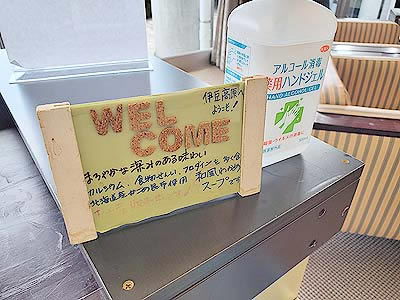 伊豆高原へ
ようこそ!
WEL
COME
まろやかな深みのある味わい
カルシウム、食物せんい、フコダインを多く含む
北海道産がごめ昆布使用 和風わかめ
スープです
アルコール消毒
薬用ハンドジェル
HAND ALCOHOL GEL